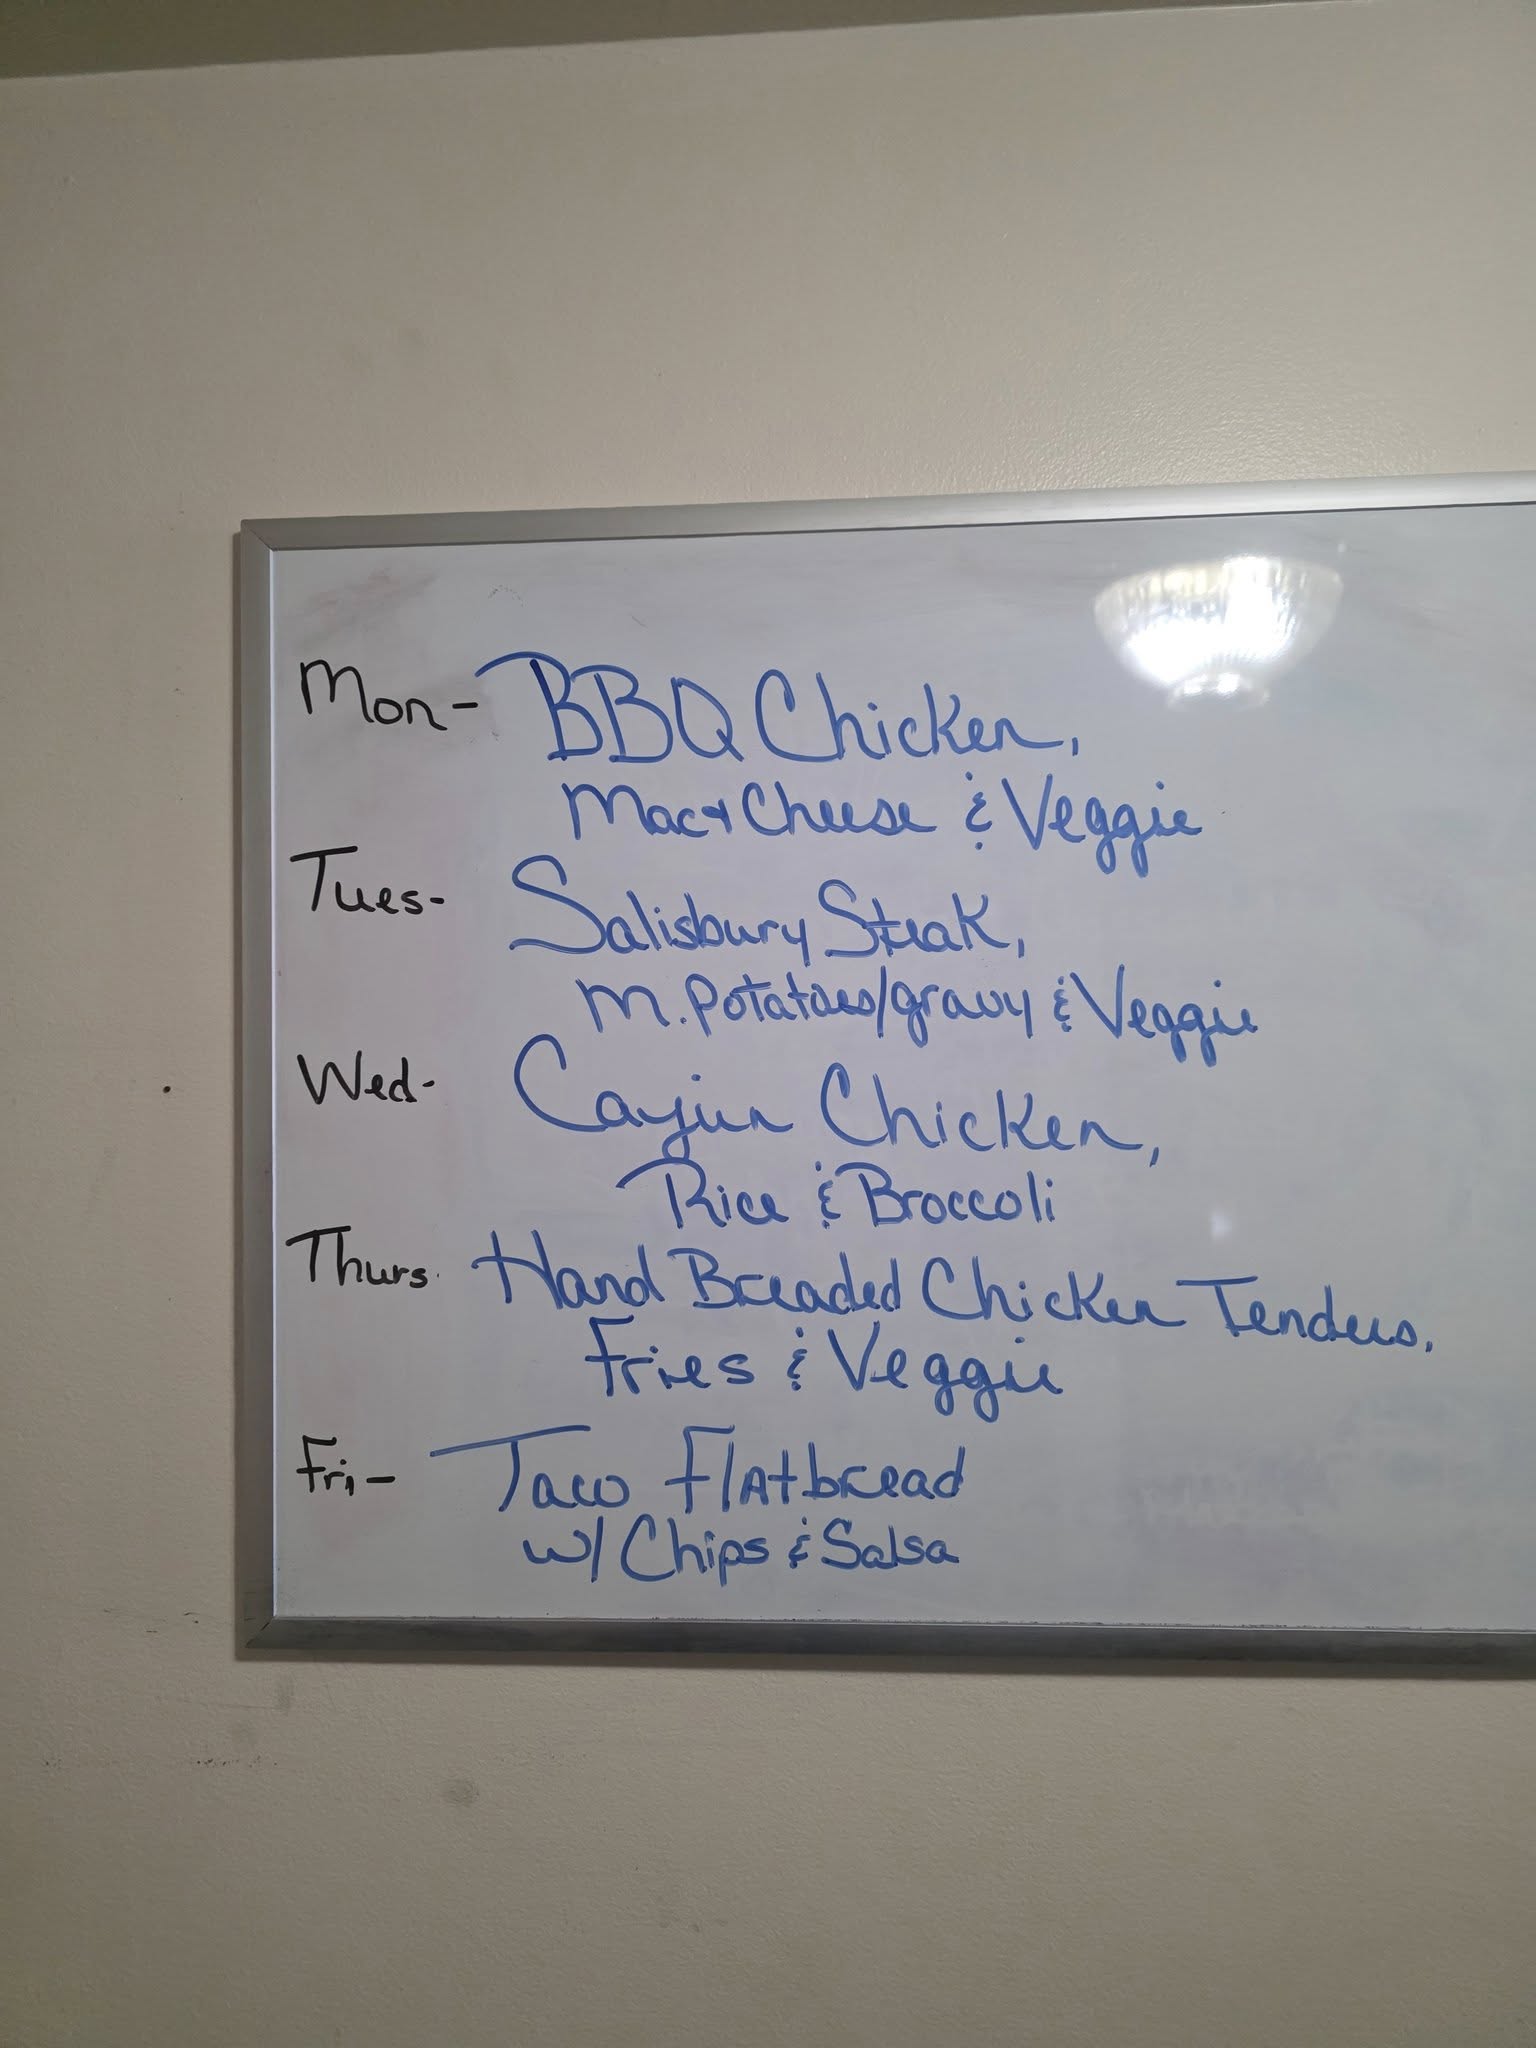 Mon- BBQ Chicken,
Mac & Cheese & Veggie
Tues- Salisbury Steak,
M. Potatoes/gravy & Veggie
Wed- Cajun Chicken,
Rice & Broccoli
Thurs. Hand Breaded Chicken Tenders,
Fries & Veggie
Fri, - Taco Flatbread
w/ Chips & Salsa